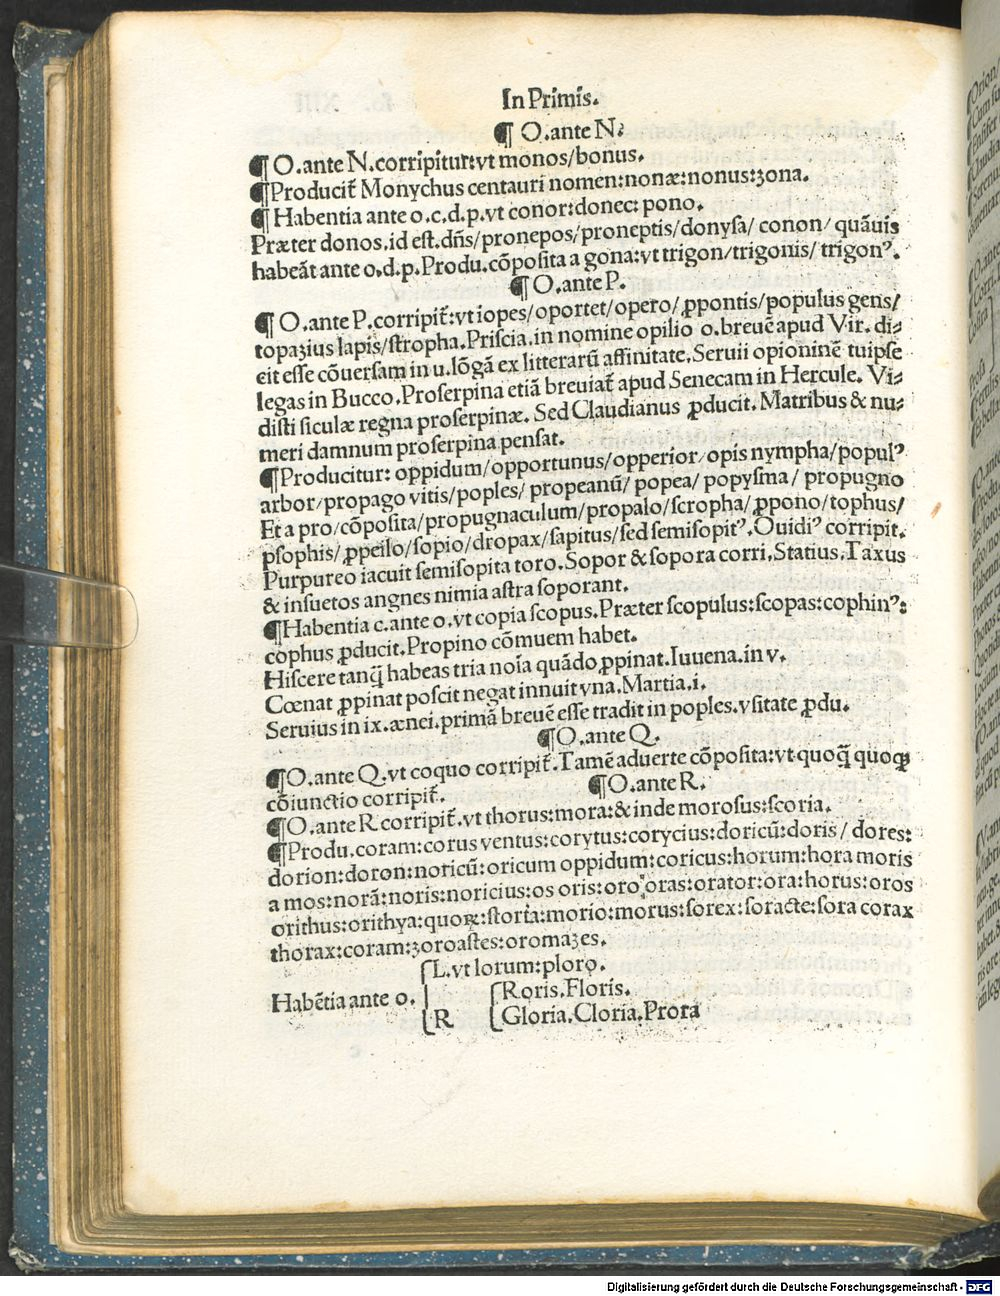 In Primis.
¶ O.ante N.
¶ O.ante N.corripitur:vt monos/bonus.
¶Producit̃ Monychus centauri nomen:nonæ:nonus:zona.
¶ Habentia ante o.c.d.p.vt conor:donec: pono.
Præter donos.id est.dñs/pronepos/proneptis/donysa/ conon/ quãuis
habeãt ante o.d.p.Produ.cõposita a gona:vt trigon/trigonis/ trigonꝰ.
¶ O.ante P.
¶ O.ante P.corripit̃:vt iopes/oportet/opero/ ꝓpontis/populus gens/
topazius lapis/stropha.Priscia.in nomine opilio o.breuẽ apud Vir. di-
cit esse cõuersam in u.lõgã ex litterarũ affinitate.Seruii opioninẽ tuipse
legas in Bucco.Proserpina etiã breuiat̃ apud Senecam in Hercule. Vi-
disti siculæ regna proserpinæ. Sed Claudianus ꝓducit. Matribus & nu-
meri damnum proserpina pensat.
¶Producitur: oppidum/opportunus/opperior/opis nympha/populꝰ
arbor/propago vitis/poples/ propeanũ/ popea/ popysma/ propugno
Et a pro/cõposita/propugnaculum/propalo/scropha/ꝓpono/tophus/
psophis/ꝓpeilo/sopio/dropax/sapitus/sed semisopitꝰ.Ouidiꝰ corripit.
Purpureo iacuit semisopita toro.Sopor & sopora corri.Statius.Taxus
& insuetos angnes nimia astra soporant.
¶Habentia c.ante o.vt copia scopus.Præter scopulus:scopas:cophinꝰ:
cophus ꝓducit.Propino cõmuem habet.
Hiscere tanq̃ habeas tria noĩa quãdo ꝓpinat.Iuuena.in v.
Cœnat ꝓpinat poscit negat innuit vna.Martia.i.
Seruius in ix.ænei.primã breuẽ esse tradit in poples.vsitate ꝓdu.
¶O.ante Q.
¶O.ante Q.vt coquo corripit̃.Tamẽ aduerte cõposita:vt quoq̃ quoqꝫ
cõiunctio corripit̃.
¶O.ante R.
¶O.ante R corripit̃.vt thorus:mora:& inde morosus:scoria.
¶Produ.coram:corus ventus:corytus:corycius:doricũ:doris/ dores:
dorion:doron:noricũ:oricum oppidum:coricus:horum:hora moris
a mos:norã:noris:noricius:os oris:oro oras:orator:ora:horus:oros
orithus:orithya:quoꝝ:storia:morio:morus:sorex:soracte:sora corax
thorax:coram:zoroastes:oromazes.
Habẽtia ante o.
L.vt lorum:ploro.
R
Roris.Floris.
Gloria.Cloria.Prora
Digitalisierung gefördert durch die Deutsche Forschungsgemeinschaft - DFG